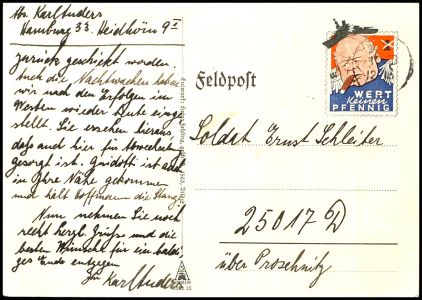 Abs. Karl Luders
Hamburg 33. Heidhörn 9 I
zurück geschickt worden.
Auch die Nachtwachen haben
wir nach den Erfolgen im
Westen wieder Heute einge
stellt. Sie ersehen hieraus,
daß auch hier für Abwechslg
gesorgt ist. ist auch
in Ihre Nähe gekommen
und hält Hoffmann die Stange.
Nun nehmen Sie noch
recht herzl. Grüße und die
besten Wünsche für ein baldi-
ges Ende entgegen
Ihr Karl Luders
Feldpost
WERT
Keinen
PFENNIG
Soldat Ernst Schleiter
25017 D
über Proschnitz